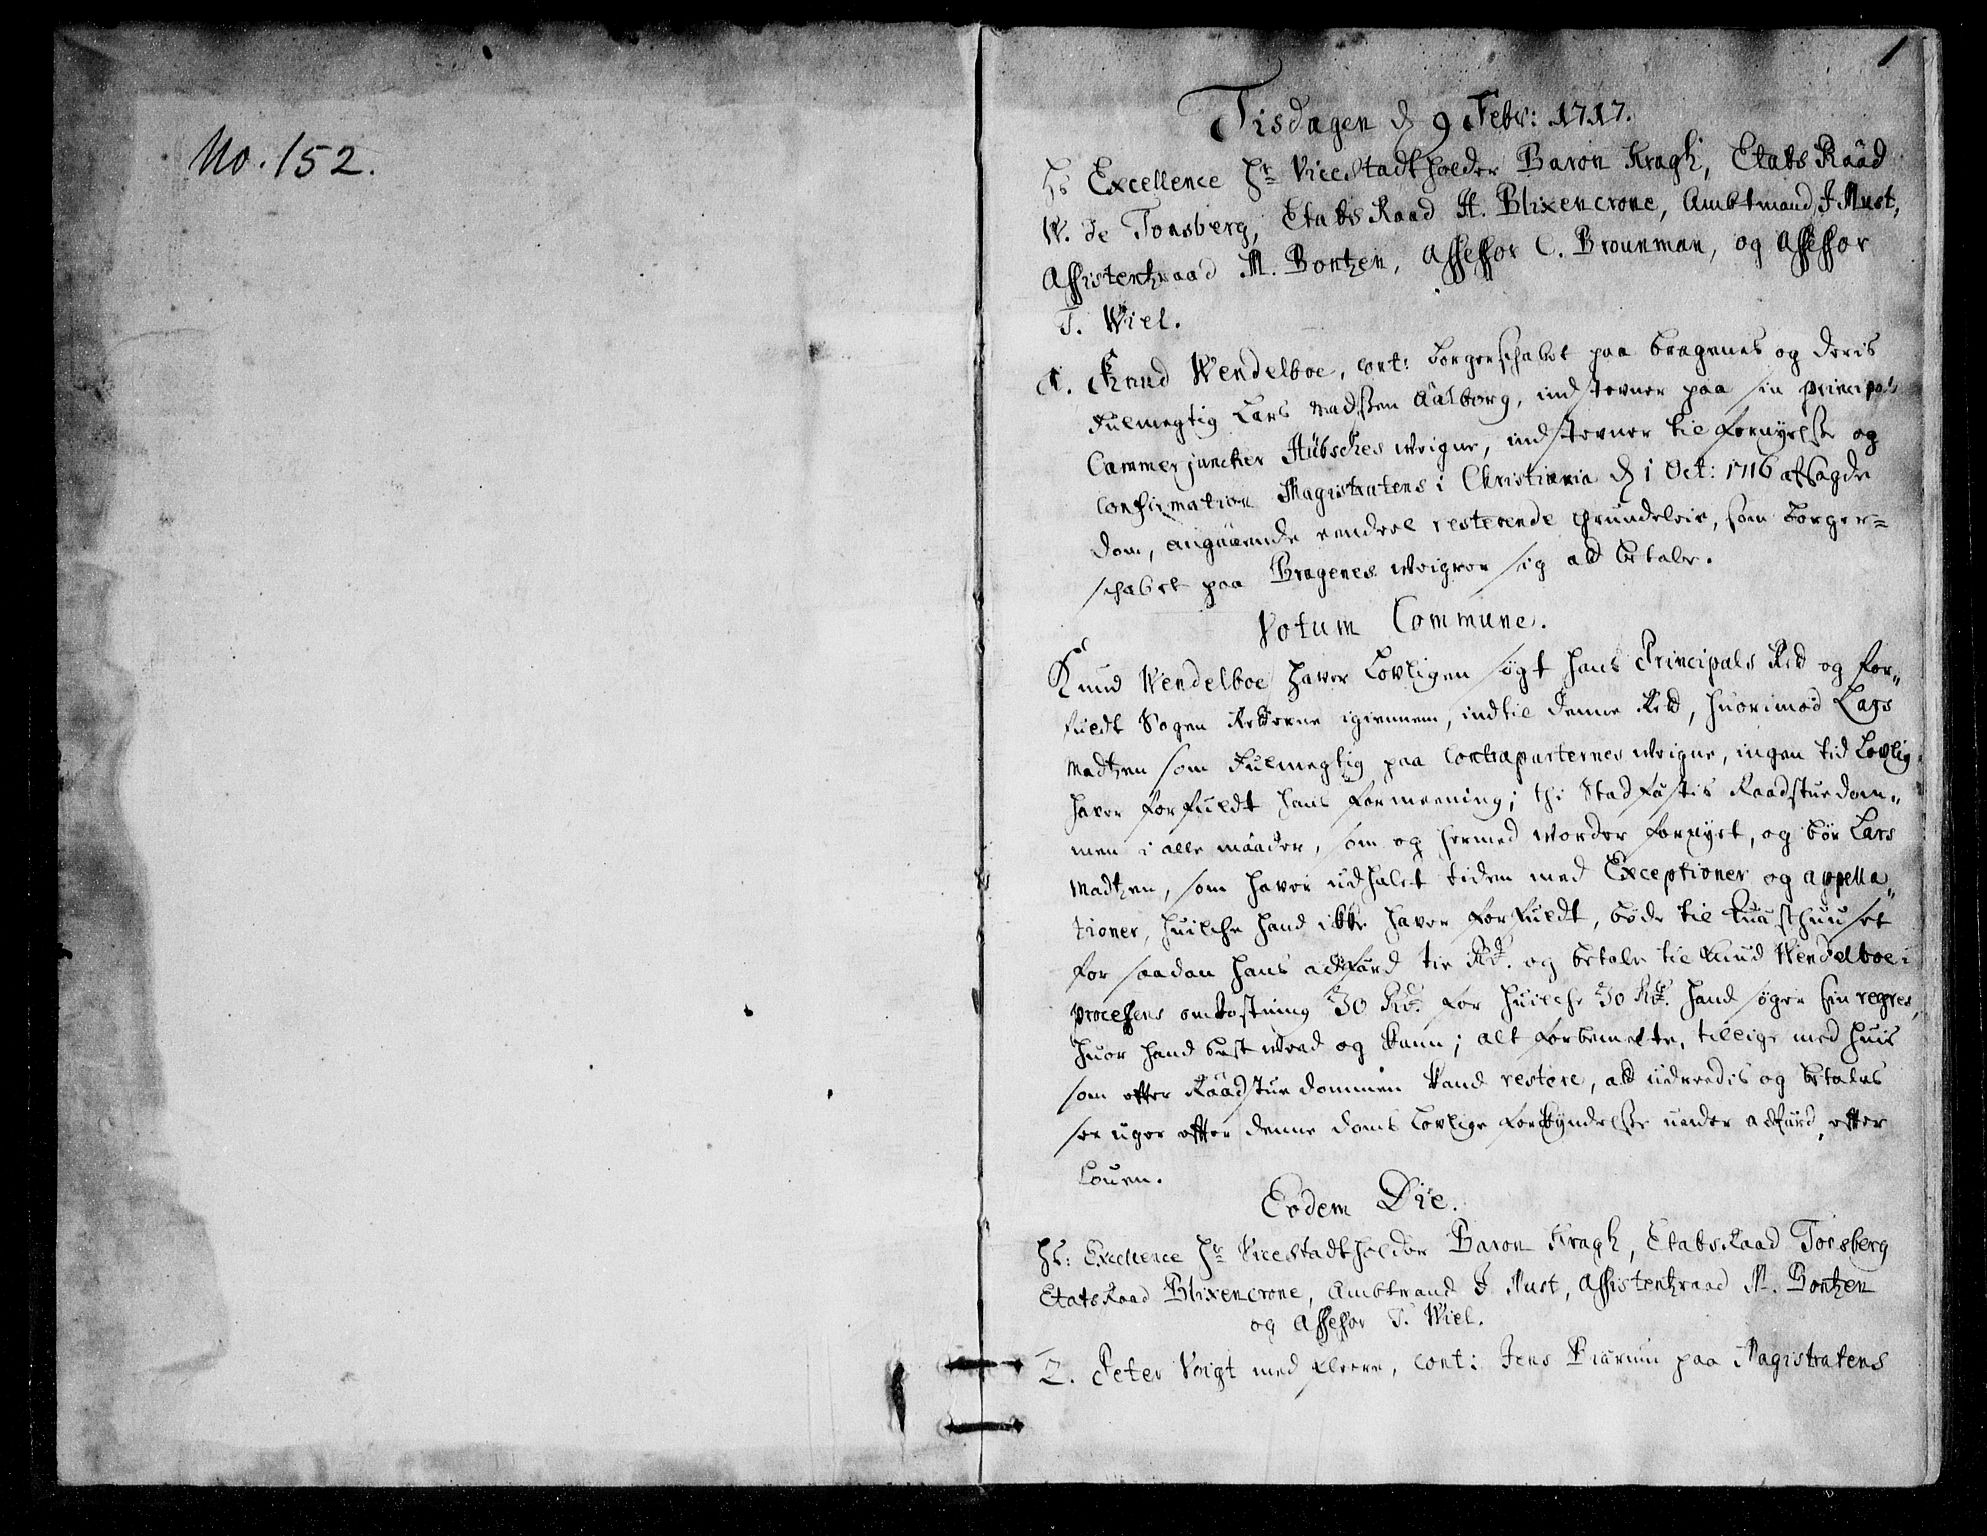 No. 152.
1
Tisdagen d 9 Febr: 1717.
Hs Excellence Hr Vice Stadtholder Baron Kragh, Etats Raad
W. de Tonsberg, Etats Raad H. Blixencrone, Ambtmand J Must,
Assistentzraad M. Bontzen, Assessor C. Brounman, og Assessor
T. Wiel.
1. Knud Wendelboe, cont: Borgerschabet paa Bragenes og deris
Fulmegtig Lars Madssen Aalborg, indstevner paa sin principal
Cammerjuncker Hübsches weigne, indstevner til fornyelsse og
confirmation Magistratens i Christiania d 1 Oct: 1716 afsagde
dom, angaaende eendeel resterende grundeleie, som Borger=
schabet paa Bragenes weigrer sig at betale.
Votum Commune.
Knud Wendelboe haver Lovligen søgt hans Principals Ret og for„
fuldt Sagen Retterne igiennem, indtil denne Ret, huorimod Lars
Madtzen som Fulmegtig paa Contraparternes weigne, ingen tid Lovlig
haver forfuldt hans formeening; thi Stadfæstis Raadstue dom„
men i alle maader, som og hermed worder fornyet, og bør Lars
Madtzen, som haver udhalet tiden med Exceptioner og appella„
tioner, huilche hand ikke haver forfuldt, bøde til Quæsthuuset
for saadan hans adfærd tie Rd. og betale til Knud Wendelboe i
processens omkostning 30 Rd. for huilche 30 Rd. hand søger sin regres,
huor hand best weed og kann; alt forbemelte, tillige med huis
som efter Raadstue dommen kand restere, at udreedis og betales
sex uger efter denne doms Lovlige forkyndelsse under adfærd efter
Louen.
Eodem Die.
Hs: Excellence Hr Vice Stadtholder Baron Kragh, Etats Raad Tonsberg
Etats Raad Blixencrone, Ambtmand J Must, Assistentzraad M. Bontzen
og Assessor T. Wiel.
2. Peter Voigt med fleere, cont: Jens Biærum paa Magistratens